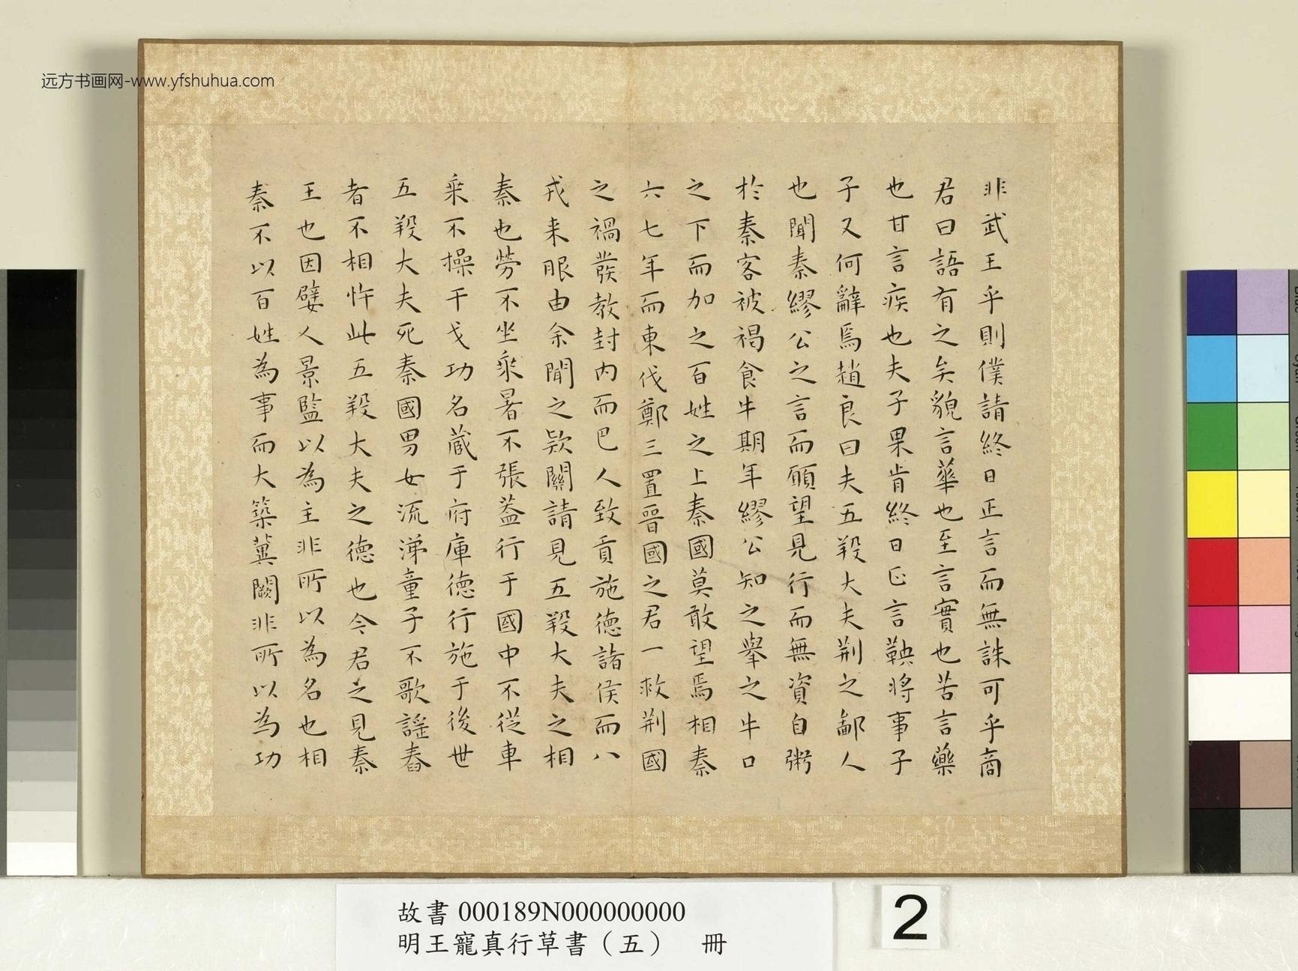 远方书画网-www.yfshuhua.com
非武王乎則僕請終日正言而無誅可乎商
君曰語有之矣貌言華也至言實也苦言藥
也甘言疾也夫子果肯終日正言鞅將事子
子又何辭焉趙良曰夫五羖大夫荆之鄙人
也聞秦繆公之言而願望見行而無資自粥
於秦客被褐食牛期年繆公知之舉之牛口
之下而加之百姓之上秦國莫敢望焉相秦
六七年而東伐鄭三置晉國之君一救荆國
之禍發教封内而巴人致貢施德諸侯而八
戎来服由余聞之款關請見五羖大夫之相
秦也勞不坐乘暑不張蓋行于國中不從車
乘不操干戈功名藏于府庫德行施于後世
五羖大夫死秦國男女流涕童子不歌謠舂
者不相忤此五羖大夫之德也今君之見秦
王也因嬖人景監以為主非所以為名也相
秦不以百姓為事而大築冀闕非所以為功
故書 000189N000000000
明王寵真行草書（五） 冊
2